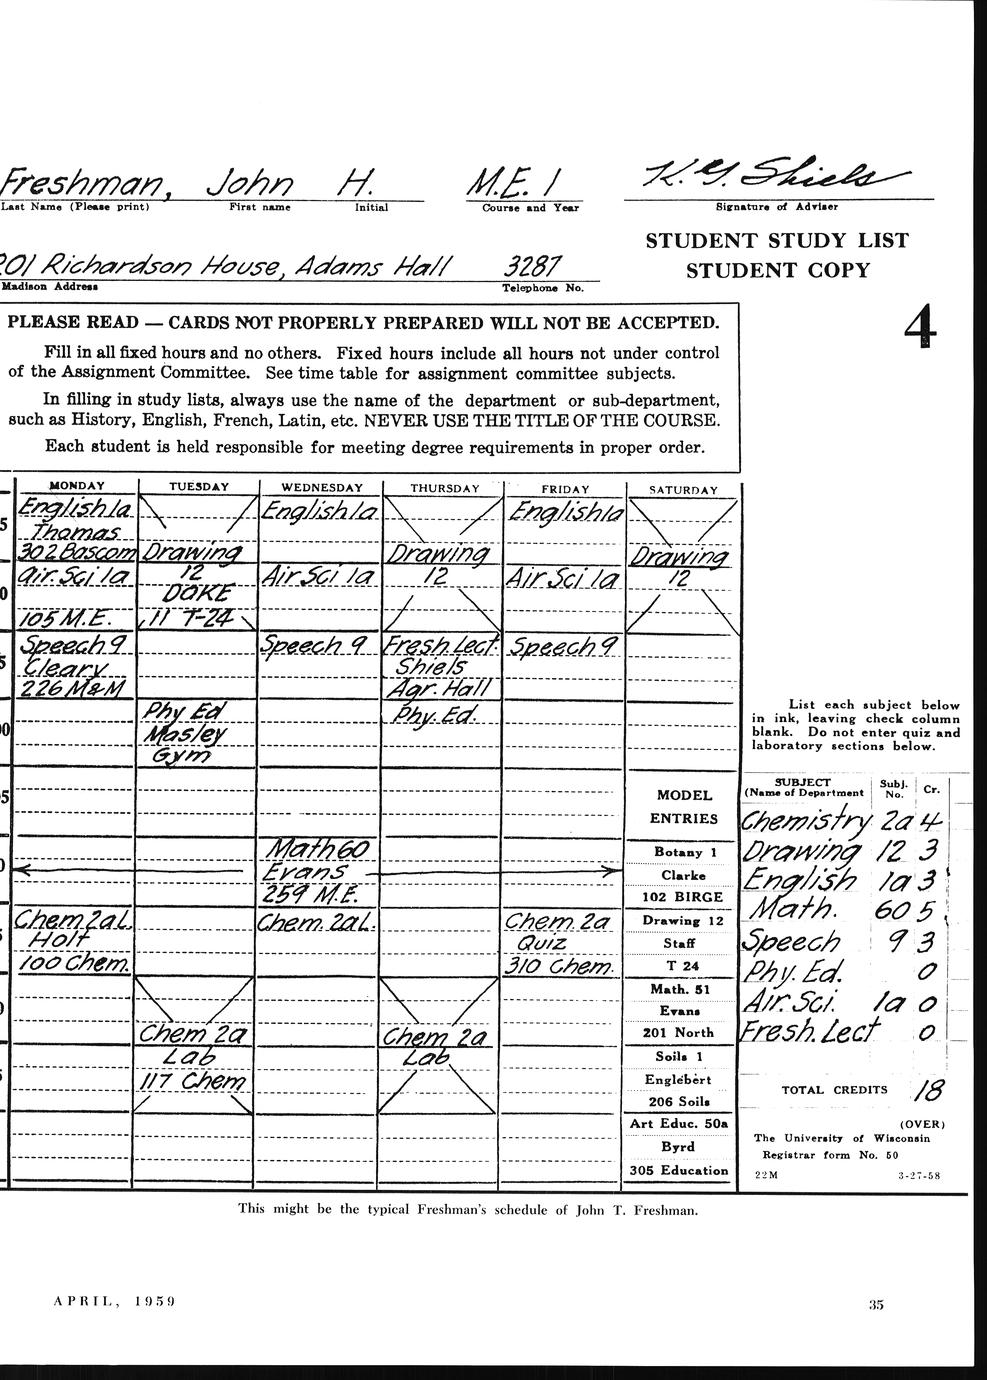 Freshman, John H. M.E. 1 K.G. Shiels
Last Name (Please print) First name Initial Course and Year Signature of Adviser
201 Richardson House, Adams Hall 3287
Madison Address Telephone No.
STUDENT STUDY LIST
STUDENT COPY
4
PLEASE READ — CARDS NOT PROPERLY PREPARED WILL NOT BE ACCEPTED.
Fill in all fixed hours and no others. Fixed hours include all hours not under control
of the Assignment Committee. See time table for assignment committee subjects.
In filling in study lists, always use the name of the department or sub-department,
such as History, English, French, Latin, etc. NEVER USE THE TITLE OF THE COURSE.
Each student is held responsible for meeting degree requirements in proper order.
MONDAY TUESDAY WEDNESDAY THURSDAY FRIDAY SATURDAY
5 English 1a English 1a English 1a
Thomas
302 Bascom Drawing Drawing Drawing
0 Air. Sci 1a 12 Air Sci 1a 12 Air Sci 1a 12
DOKE
105 M.E. 11 T-24
5 Speech 9 Speech 9 Fresh. Lect. Speech 9
Cleary Shiels
226 M&M Agr. Hall
00 Phy Ed Phy. Ed.
Masley
Gym
5
0 Math 60
Evans
259 M.E.
5 Chem 2aL. Chem. 2aL. Chem 2a
Holt Quiz
100 Chem. 310 Chem.
0
Chem 2a Chem 2a
5 Lab Lab
117 Chem
MODEL
ENTRIES
Botany 1
Clarke
102 BIRGE
Drawing 12
Staff
T 24
Math. 51
Evans
201 North
Soils 1
Englebert
206 Soils
Art Educ. 50a
Byrd
305 Education
List each subject below
in ink, leaving check column
blank. Do not enter quiz and
laboratory sections below.
SUBJECT Subj. Cr.
(Name of Department No.
Chemistry 2a 4
Drawing 12 3
English 1a 3
Math. 60 5
Speech 9 3
Phy. Ed. 0
Air. Sci. 1a 0
Fresh. Lect 0
TOTAL CREDITS 18
(OVER)
The University of Wisconsin
Registrar form No. 50
22M 3-27-58
This might be the typical Freshman's schedule of John T. Freshman.
APRIL, 1959 35